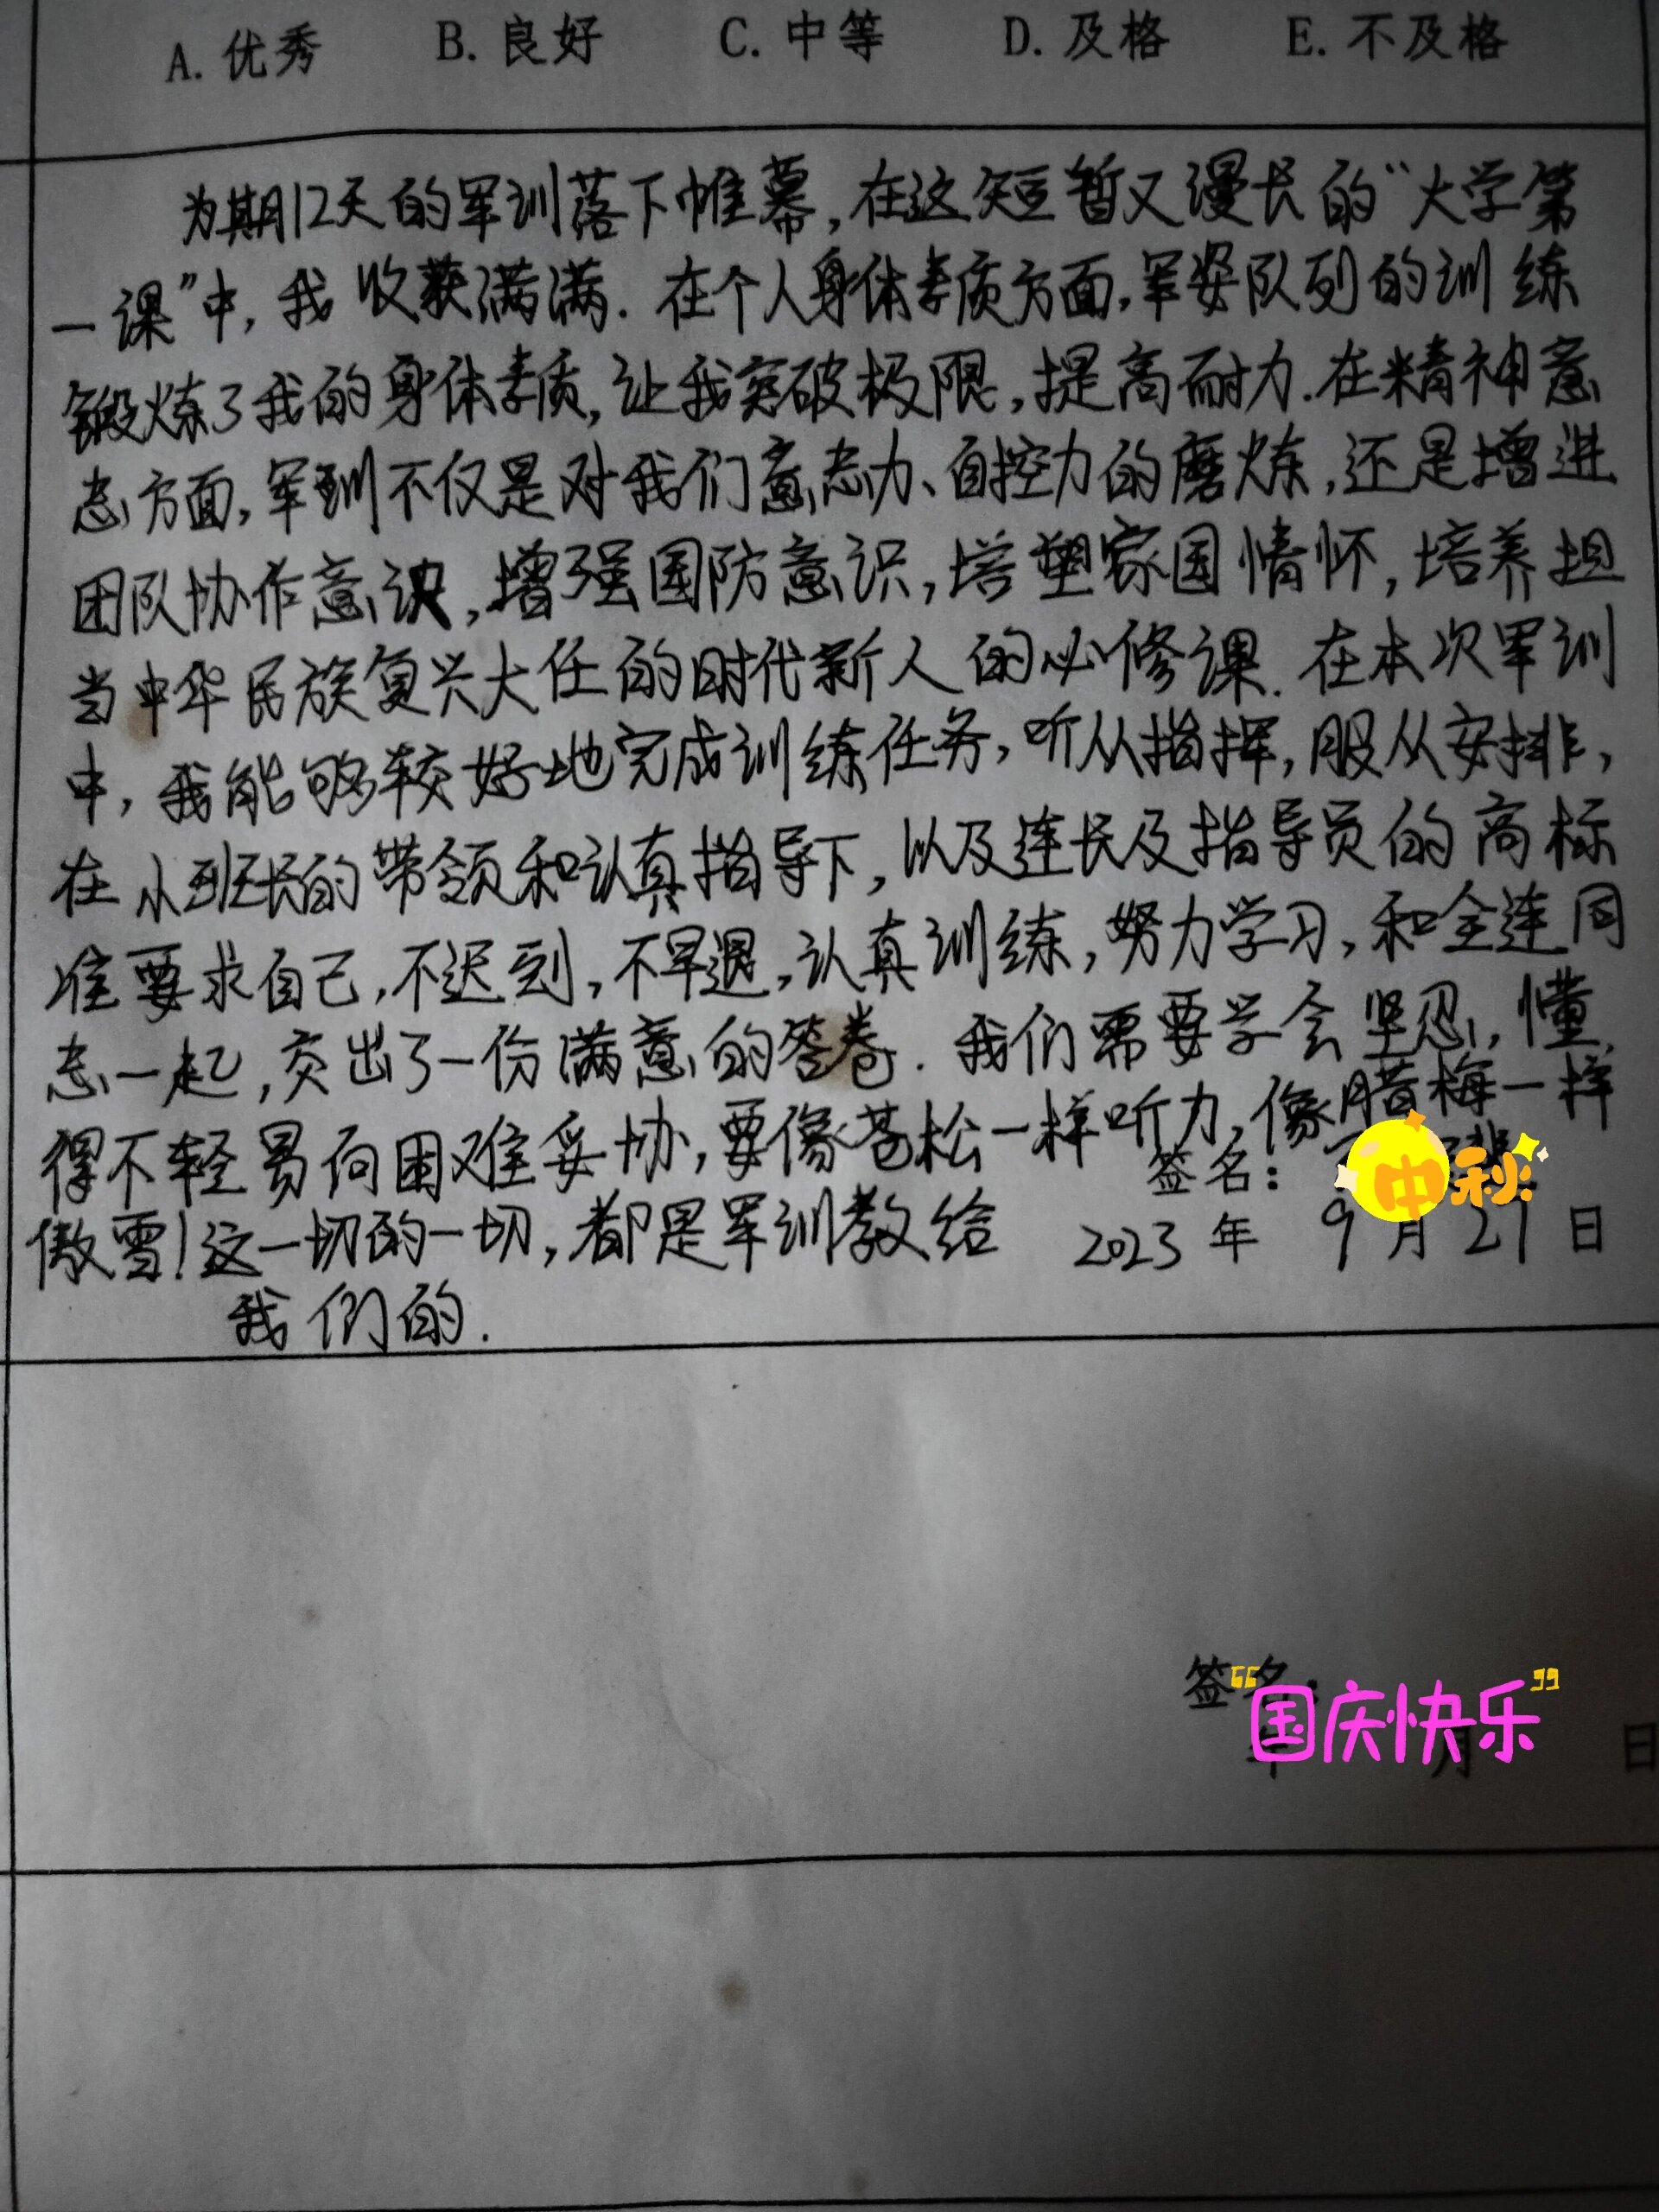 A. 优秀 B. 良好 C. 中等 D. 及格 E. 不及格
为期12天的军训落下帷幕,在这短暂又漫长的“大学第
一课”中,我收获满满.在个人身体素质方面,军姿队列的训练
锻炼了我的身体素质,让我突破极限,提高耐力.在精神意
志方面,军训不仅是对我们意志力、自控力的磨炼,还是增进
团队协作意识,增强国防意识,培塑家国情怀,培养担
当中华民族复兴大任的时代新人的必修课.在本次军训
中,我能够较好地完成训练任务,听从指挥,服从安排,
在小班长的带领和认真指导下,以及连长及指导员的高标
准要求自己,不迟到,不早退,认真训练,努力学习,和全连同
志一起,交出了一份满意的答卷.我们需要学会坚忍,懂
得不轻易向困难妥协,要像苍松一样听力,像腊梅一样
签名: 中秋
傲雪!这一切的一切,都是军训教给
2023年 9月 27日
我们的.
签名:
“国庆快乐”
年 月 日